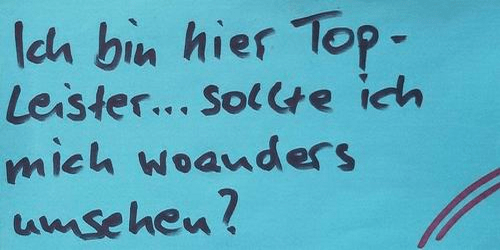 Ich bin hier Top-
Leister... sollte ich
mich woanders
umsehen?